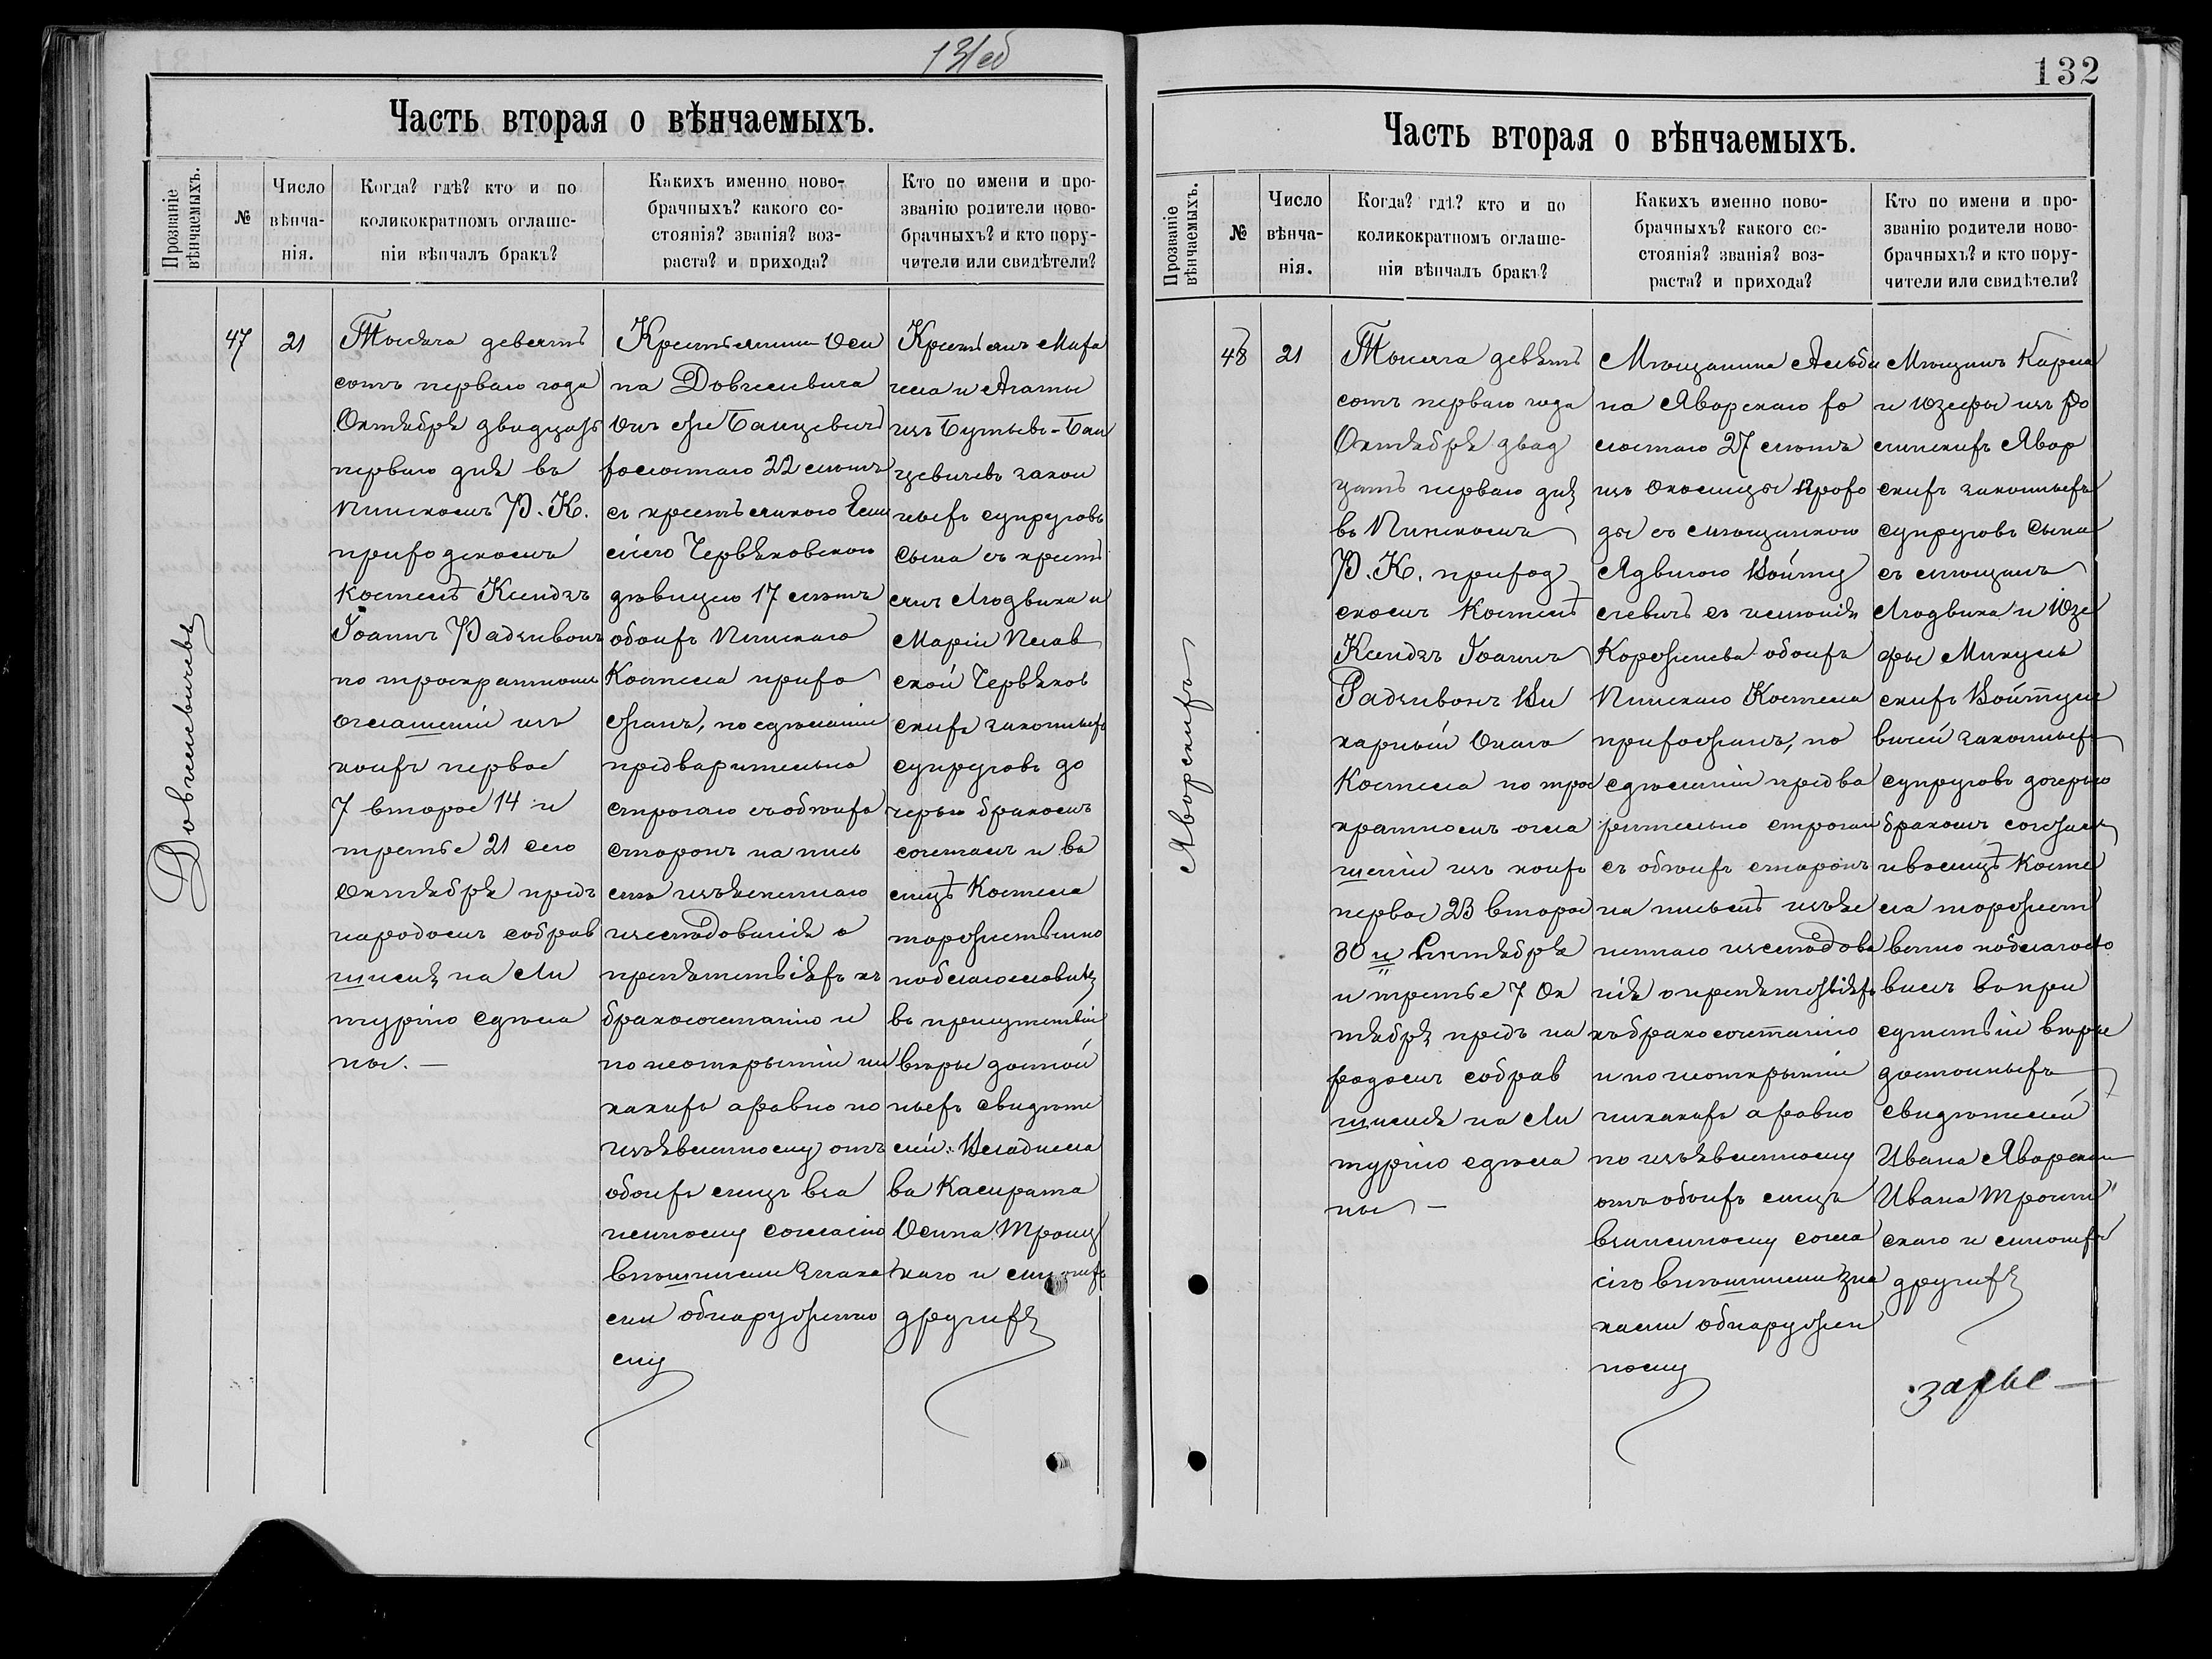 131об
Часть вторая о вѣнчаемыхъ.
Прозваніе вѣнчаемыхъ.
№
Число вѣнча-
нія.
Когда? гдѣ? кто и по
коликократномъ оглаше-
ніи вѣнчалъ бракъ?
Какихъ именно ново-
брачныхъ? какого со-
стоянія? званія? воз-
раста? и прихода?
Кто по имени и про-
званію родители ново-
брачныхъ? и кто пору-
чители или свидѣтели?
Довгшевичевъ
47
21
Тысяча девять
сотъ перваго года
Октября двадцать
перваго дня въ
Пинскомъ Р. К.
приходскомъ
костелѣ Ксендзъ
Іоаннъ Радзивонъ
по троекратномъ
оглашеніи изъ
коихъ первое
7 второе 14 и
третье 21 сего
Октября предъ
народомъ собрав
шися на Ли
тургію сдѣла
ны. —
Крестьянина Оси
па
онъ же Банцевичъ
холостаго 22 лѣтъ
съ крестьянкою
Червяковскою
дѣвицею 17 лѣтъ
обоихъ Пинскаго
Костела прихо
жанъ, по сдѣланіи
предварительно
строгаго съ обѣихъ
сторонъ на пись
мѣ изъясненнаго
изслѣдованія о
препятствіяхъ къ
бракосочетанію и
по неоткрытіи ни
какихъ а равно по
изъявленному отъ
обоихъ лицъ вза
имному согласію
внѣшними знака
ми обнаруженно
му
Крестьянъ Миха
ила и Агаты
изъ Бутьевъ-Бан
цевичевъ закон
ныхъ супруговъ
сына съ кресть
янъ Людвика и
Маріи
ской Червяков
скихъ законныхъ
супруговъ до
черью бракомъ
сочеталъ и въ
лицѣ Костела
торжественно
поблагословилъ
въ присутствіи
вѣры достой
ныхъ свидѣте
лей: Владисла
ва
Осипа Троиц
каго и многихъ
другихъ
132
Часть вторая о вѣнчаемыхъ.
Прозваніе вѣнчаемыхъ.
№
Число вѣнча-
нія.
Когда? гдѣ? кто и по
коликократномъ оглаше-
ніи вѣнчалъ бракъ?
Какихъ именно ново-
брачныхъ? какого со-
стоянія? званія? воз-
раста? и прихода?
Кто по имени и про-
званію родители ново-
брачныхъ? и кто пору-
чители или свидѣтели?
Яворскихъ
48
21
Тысяча девять
сотъ перваго года
Октября двад
цать перваго дня
въ Пинскомъ
Р. К. приход
скомъ Костелѣ
Ксендзъ Іоаннъ
Радзивонъ Ви
карный онаго
Костела по трое
кратномъ огла
шеніи изъ коихъ
первое 23 второе
30 и Сентября
и третье 7 Ок
тября предъ на
родомъ собрав
шися на Ли
тургію сдѣла
ны —
Мѣщанина Альби
на Яворскаго хо
лостаго 27 лѣтъ
изъ околицы
съ мѣщанкою
Ядвигою Войту
левичъ съ имѣнія
обоихъ
Пинскаго Костела
прихожанъ, по
сдѣланіи предва
рительно строгаго
съ обѣихъ сторонъ
на письмѣ изъяс
неннаго изслѣдова
нія о препятствіяхъ
къ бракосочетанію
и по неоткрытіи
никакихъ а равно
по изъявленному
отъ обоихъ лицъ
взаимному согла
сію внѣшними зна
ками обнаружен
ному
Мѣщанъ Карла
и Юзефы изъ
Явор
скихъ законныхъ
супруговъ сына
съ мѣщанъ
Людвика и Юзе
фы Микуль
скихъ Войтуле
вичей законныхъ
супруговъ дочерью
бракомъ
и въ лицѣ Косте
ла торжест
венно поблагосло
вилъ въ при
сутствіи вѣры
достойныхъ
свидѣтелей
Ивана Яворска
Ивана
скаго и многихъ
другихъ